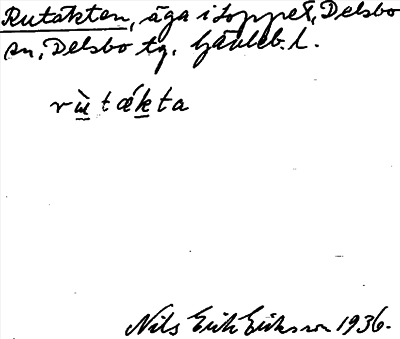 Rutäkten, äga i Loppet, Delsbo
sn, Delsbo tg. Gävleb. l.
rù̱tǽḵta
Nils Erik Eriksson 1936.